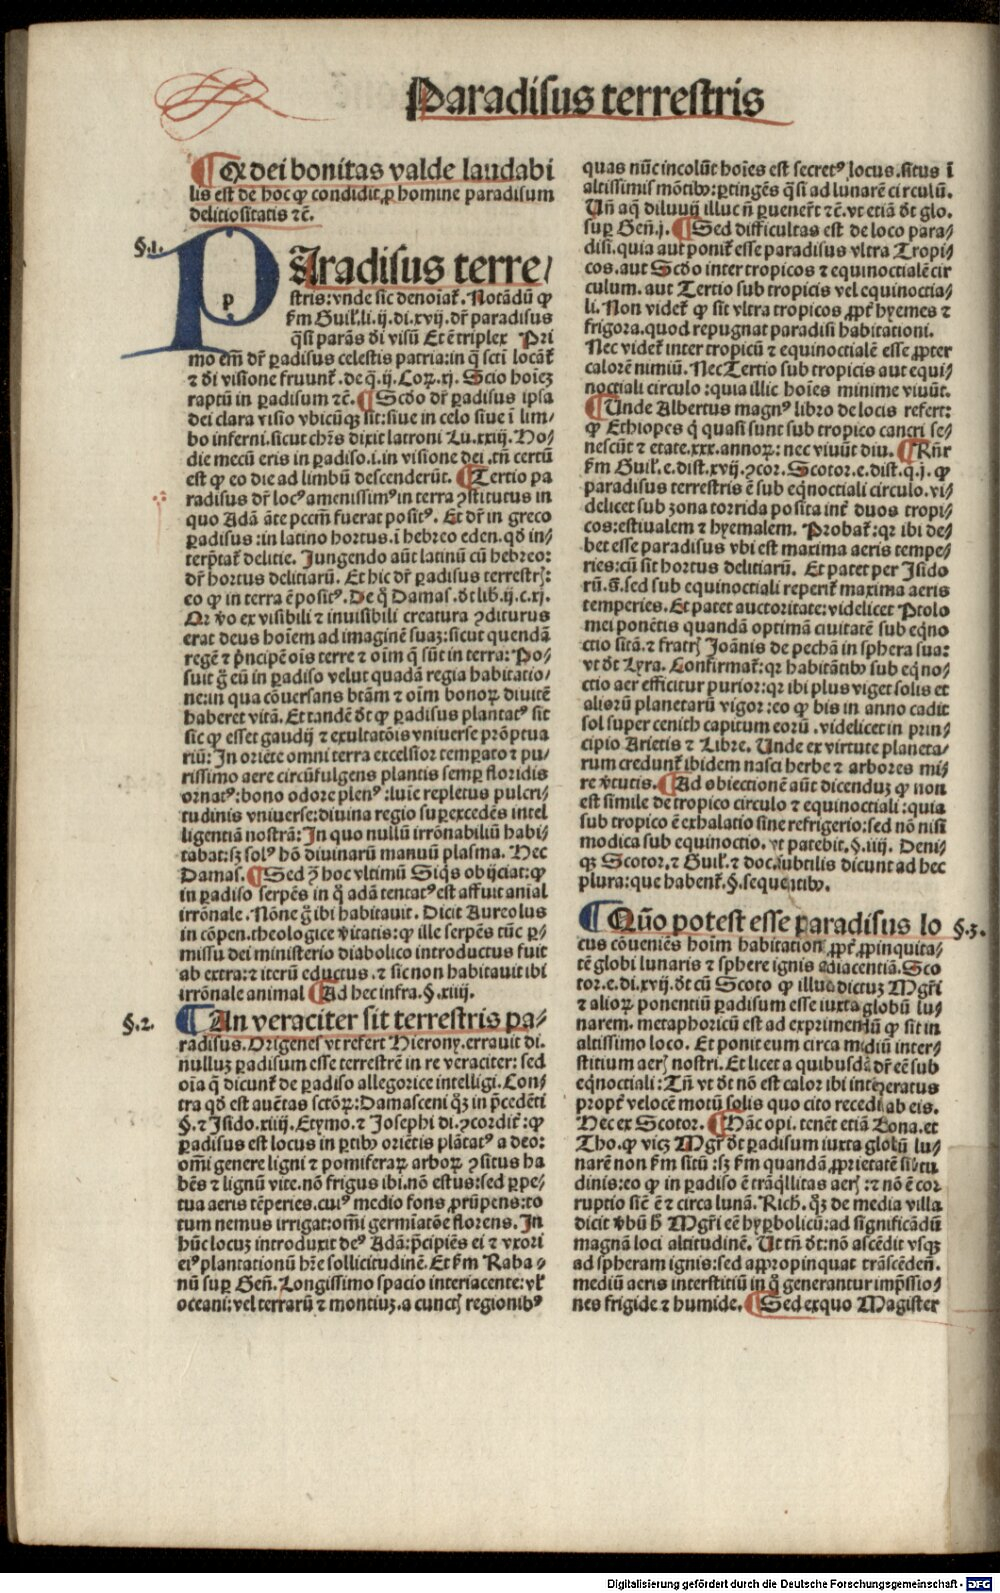 Paradisus terrestris
¶ Qꝙ dei bonitas valde laudabi
lis est de hoc ꝙ condidit ꝓ homine paradisum
delitiositatis ⁊c̄.
§.1.
PAradisus terre/
stris: vnde sic denoīat᷑. Notādū ꝙ
ẜm Guil᷑.li.ij.di.xvij.dr̄ paradisus
q̄si parās di visū Et ē triplex Pri
mo em̄ dr̄ ꝑadisus celestis patria: in q̄ sctī locāt᷑
⁊ di visione fruunt᷑.de q̄.ij.Coꝝ.xj. Scio hoīeꝫ
raptū in ꝑadisum ⁊c̄. ¶ Scd̄o dr̄ ꝑadisus ipsa
dei clara visio vbicūqꝫ sit: siue in celo siue ī lim/
bo inferni.sicut chr̄s dixit latroni Lu.xxiij. Ho/
die mecū eris in ꝑadiso.i.in visione dei .tn̄ certū
est ꝙ eo die ad limbū descenderūt. ¶ Tertio pa
radisus dr̄ locꝰ amenissimꝰ in terra ꝯstitutus in
quo Adā āte pctm̄ fuerat positꝰ. Et dr̄ in greco
ꝑadisus: in latino hortus.ī hebreo eden. qd̄ in/
terp̄tat᷑ delitie. Jungendo aūt latinū cū hebreo:
dr̄ hortus delitiarū. Et hic dr̄ ꝑadisus terrestr̄:
eo ꝙ in terra ē positꝰ. De q̄ Damas.dt̄ lib̄.ij.c.xj.
Qr v̄o ex visibili ⁊ inuisibili creatura ꝯditurus
erat deus hoīem ad imaginē suaꝫ: sicut quendā
regē ⁊ p̄ncipē oīs terre ⁊ oīm q̄ sūt in terra: Po/
suit g̊ eū in ꝑadiso velut quadā regia habitatio/
ne: in qua cōuersans btām ⁊ oīm bonoꝝ diuitē
haberet vitā. Et tandē dt̄ ꝙ ꝑadisus plantatꝰ sit
sic ꝙ esset gaudij ⁊ exultatōis vniuerse prōptua
riū: In oriēte omni terra excelsior temꝑato ⁊ pu/
rissimo aere circūfulgens plantis semꝑ floridis
ornatꝰ: bono odore plenꝰ: luīe repletus pulcri/
tudinis vniuerse: diuina regio suꝑexcedēs intel
ligentiā nostrā: In quo nullū irrōnabiliū habi/
tabat: sꝫ solꝰ hō diuinarū manuū plasma. Hec
Damas. ¶ Sed ꝯ̄ hoc vltimū Siqͥs obijciat: ꝙ
in ꝑadiso serpēs in q̄ adā tentatꝰ est affuit anial
irrōnale. Nōne g̊ ibi habitauit. Dicit Aureolus
in cōpen.theologice v̄itatis: ꝙ ille serpēs tūc ꝑ/
missu dei ministerio diabolico introductus fuit
ab extra: ⁊ iterū eductus. ⁊ sic non habitauit ibi
irrōnale animal ¶ Ad hec infra.§.xiiij.
§.2.
¶ An veraciter sit terrestris pa/
radisus. Origenes vt refert Hierony. errauit di.
nulluꝫ ꝑadisum esse terrestrē in re veraciter: sed
oīa q̄ dicunt᷑ de ꝑadiso allegorice intelligi. Con/
tra qd̄ est auc̄tas sctōꝝ: Damasceni qͣꝫ in p̄cedēti
§.⁊ Isido.xiiij. Etymo.⁊ Josephi di.ꝯcordit̄: ꝙ
ꝑadisus est locus in ꝑtibꝰ oriētis plātatꝰ a deo:
omī genere ligni ⁊ pomiferaꝝ arboꝝ ꝯsitus ha
bēs ⁊ lignū vite.nō frigus ibi.nō estus: sed ꝑpe/
tua aeris tēperies.cuiꝰ medio fons ꝓrūpens: to
tum nemus irrigat: omī germīatōe florens. In
hūc locuꝫ introduxit deꝰ Adā: p̄cipiēs ei ⁊ vxori
eiꝰ plantationū hr̄e sollicitudinē. Et ẜm Raba/
nū suꝑ Gen̄. Longissimo spacio interiacente: vl᷑
oceani: vel terrarū ⁊ montiuꝫ. a cunct̄ regionibꝰ
quas nūc incolūt hoīes est secretꝰ locus.situs ī
altissimis mōtibꝰ: ꝑtingēs q̄si ad lunarē circulū.
Vn̄ aq̄ diluuij illuc n̄ ꝑuener̄t ⁊c̄.vt etiā dt̄ glo.
suꝑ Gen̄.j. ¶ Sed difficultas est de loco para/
disi. quia aut ponit᷑ esse paradisus vltra Tropi/
cos. aut Scd̄o inter tropicos ⁊ equinoctialē cir
culum. aut Tertio sub tropicis vel equinoctia/
li. Non videt᷑ ꝙ sit vltra tropicos ꝓpt᷑ hyemes ⁊
frigora. quod repugnat paradisi habitationi.
Nec videt᷑ inter tropicū ⁊ equinoctialē esse ꝓpter
calorē nimiū. Nec Tertio sub tropicis aut equi/
noctiali circulo: quia illic hoīes minime viuūt.
¶ Unde Albertus magnꝰ libro de locis refert:
ꝙ Ethiopes q̄ quasi sunt sub tropico cancri se/
nescūt ⁊ etate.xxx.annoꝝ: nec viuūt diu. ¶ Rn̄r
ẜm Guil᷑.e.dist.xvij.ꝯcor. Scotor.e.dist.q.j. ꝙ
paradisus terrestris ē sub eq̄noctiali circulo.vi/
delicet sub zona torrida posita int̄ duos tropi/
cos: estiualem ⁊ hyemalem. Probat᷑: qr ibi de/
bet esse paradisus vbi est maxima aeris tempe/
ries: cū sit hortus delitiarū. Et patet per Isido
rū.s̄. sed sub equinoctiali reperit᷑ maxima aeris
temperies. Et patet auctoritate: videlicet Ptolo
mei ponētis quandā optimā ciuitatē sub eq̄no
ctio sitā. ⁊ fratr̄ Joānis de pechā in sphera sua:
vt dt̄ Lyra. Confirmat᷑: qr habitātibꝰ sub eq̄no/
ctio aer efficitur purior: qr ibi plus viget solis et
aliorū planetarū vigor: eo ꝙ bis in anno cadit
sol super cenith capitum eorū. videlicet in prin/
cipio Arietis ⁊ Libre. Unde ex virtute planeta/
rum credunt᷑ ibidem nasci herbe ⁊ arbores mi/
re v̄tutis. ¶ Ad obiectionē aūt dicenduꝫ ꝙ non
est simile de tropico circulo ⁊ equinoctiali: quia
sub tropico ē exhalatio sine refrigerio: sed nō nisi
modica sub equinoctio. vt patebit.§.iiij. Deni/
qꝫ Scotor.⁊ Guil᷑.⁊ doc.subtilis dicunt ad hec
plura: que habent᷑.§.sequentibꝰ.
¶ Quō potest esse paradisus lo §.3.
cus cōueniēs hoīm habitation ꝓpt᷑ ꝓpinquita/
tē globi lunaris ⁊ sphere ignis adiacentiā. Sco
tor.e.di.xvij. dt̄ cū Scoto ꝙ illud dictuꝫ Mgr̄i
⁊ alioꝝ ponentiū ꝑadisum esse iuxta globū lu/
narem. metaphoricū est ad exprimendū ꝙ sit in
altissimo loco. Et ponit eum circa midiū inter/
stitium aer̄ nostri. Et licet a quibusdā dr̄ eē sub
eq̄noctiali: Tn̄ vt dt̄ nō est calor ibi intēperatus
propt᷑ velocē motū solis quo cito recedi ab eis.
Hec ex Scotor. ¶ Hāc opi. tenēt etiā Bona. et
Tho. ꝙ vicꝫ Mgr̄ dt̄ ꝑadisum iuxta globū lu/
narē non ẜm sitū: sꝫ ẜm quandā ꝓprietatē silitu
dinis: eo ꝙ in ꝑadiso ē trāq̄llitas aer̄: ⁊ nō ē cor
ruptio sic̄ ē ⁊ circa lunā. Rich. qͣꝫ de media villa
dicit v̄bū h̄ Mgr̄i eē hyꝑbolicū: ad significādū
magnā loci altitudinē. Ut tn̄ dt̄: nō ascēdit vsqꝫ
ad spheram ignis: sed aꝓpinquat trāscēden̄.
mediū aeris interstitiū in q̄ generantur imp̄ssio/
nes frigide ⁊ humide. ¶ Sed exquo Magister
Digitalisierung gefördert durch die Deutsche Forschungsgemeinschaft - DFG